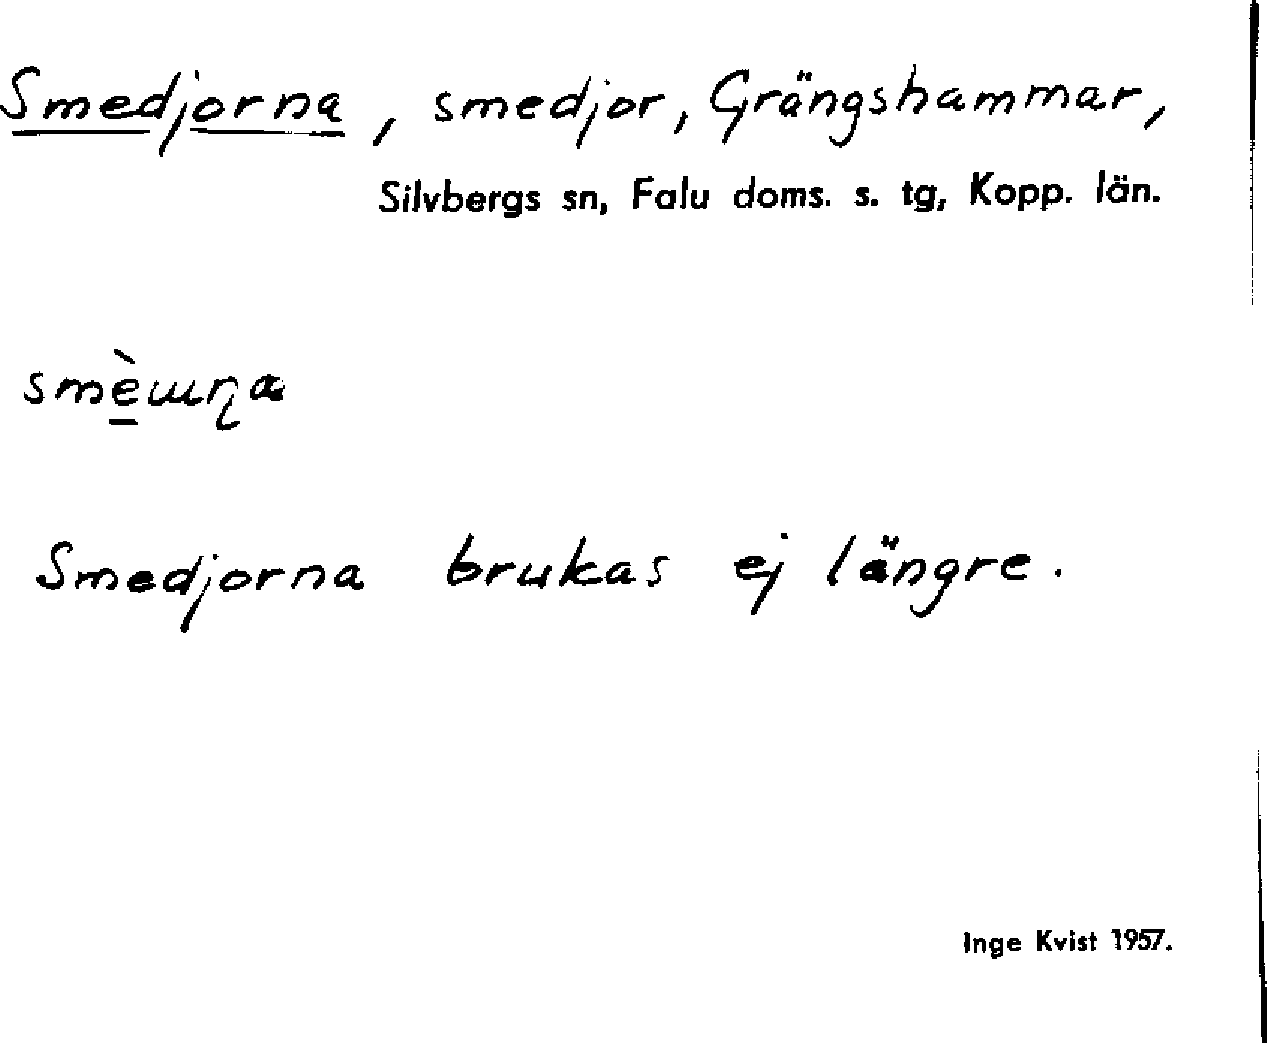 Smedjorna, smedjor, Grängshammar,
Silvbergs sn, Falu doms. s. tg, Kopp. län.
Smedjorna brukas ej längre.
Inge Kvist 1957.